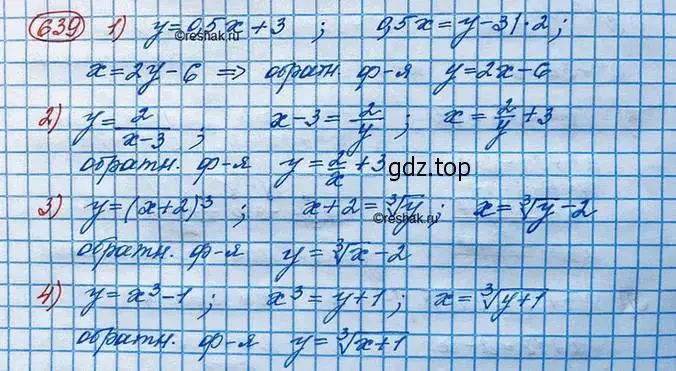 639 1) y=0,5x+3 ; 0,5x=y-3|·2 ;
©reshak.ru
x=2y-6 ⇒ обратн. ф-я y=2x-6
2) y=2/(x-3) ; x-3=2/y ; x=2/y+3
обратн. ф-я y=2/x+3
gdz.top
3) y=(x+2)³ ; x+2=∛y ; x=∛y-2
©reshak.ru
обратн. ф-я y=∛x-2
4) y=x³-1 ; x³=y+1 ; x=∛(y+1)
обратн. ф-я y=∛(x+1)